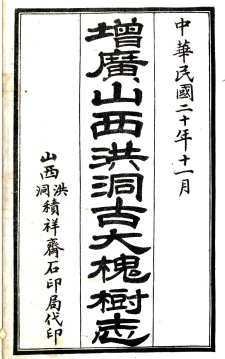 中華民國二十年十一月
增廣山西洪洞古大槐樹志
山西洪洞積祥齋石印局代印